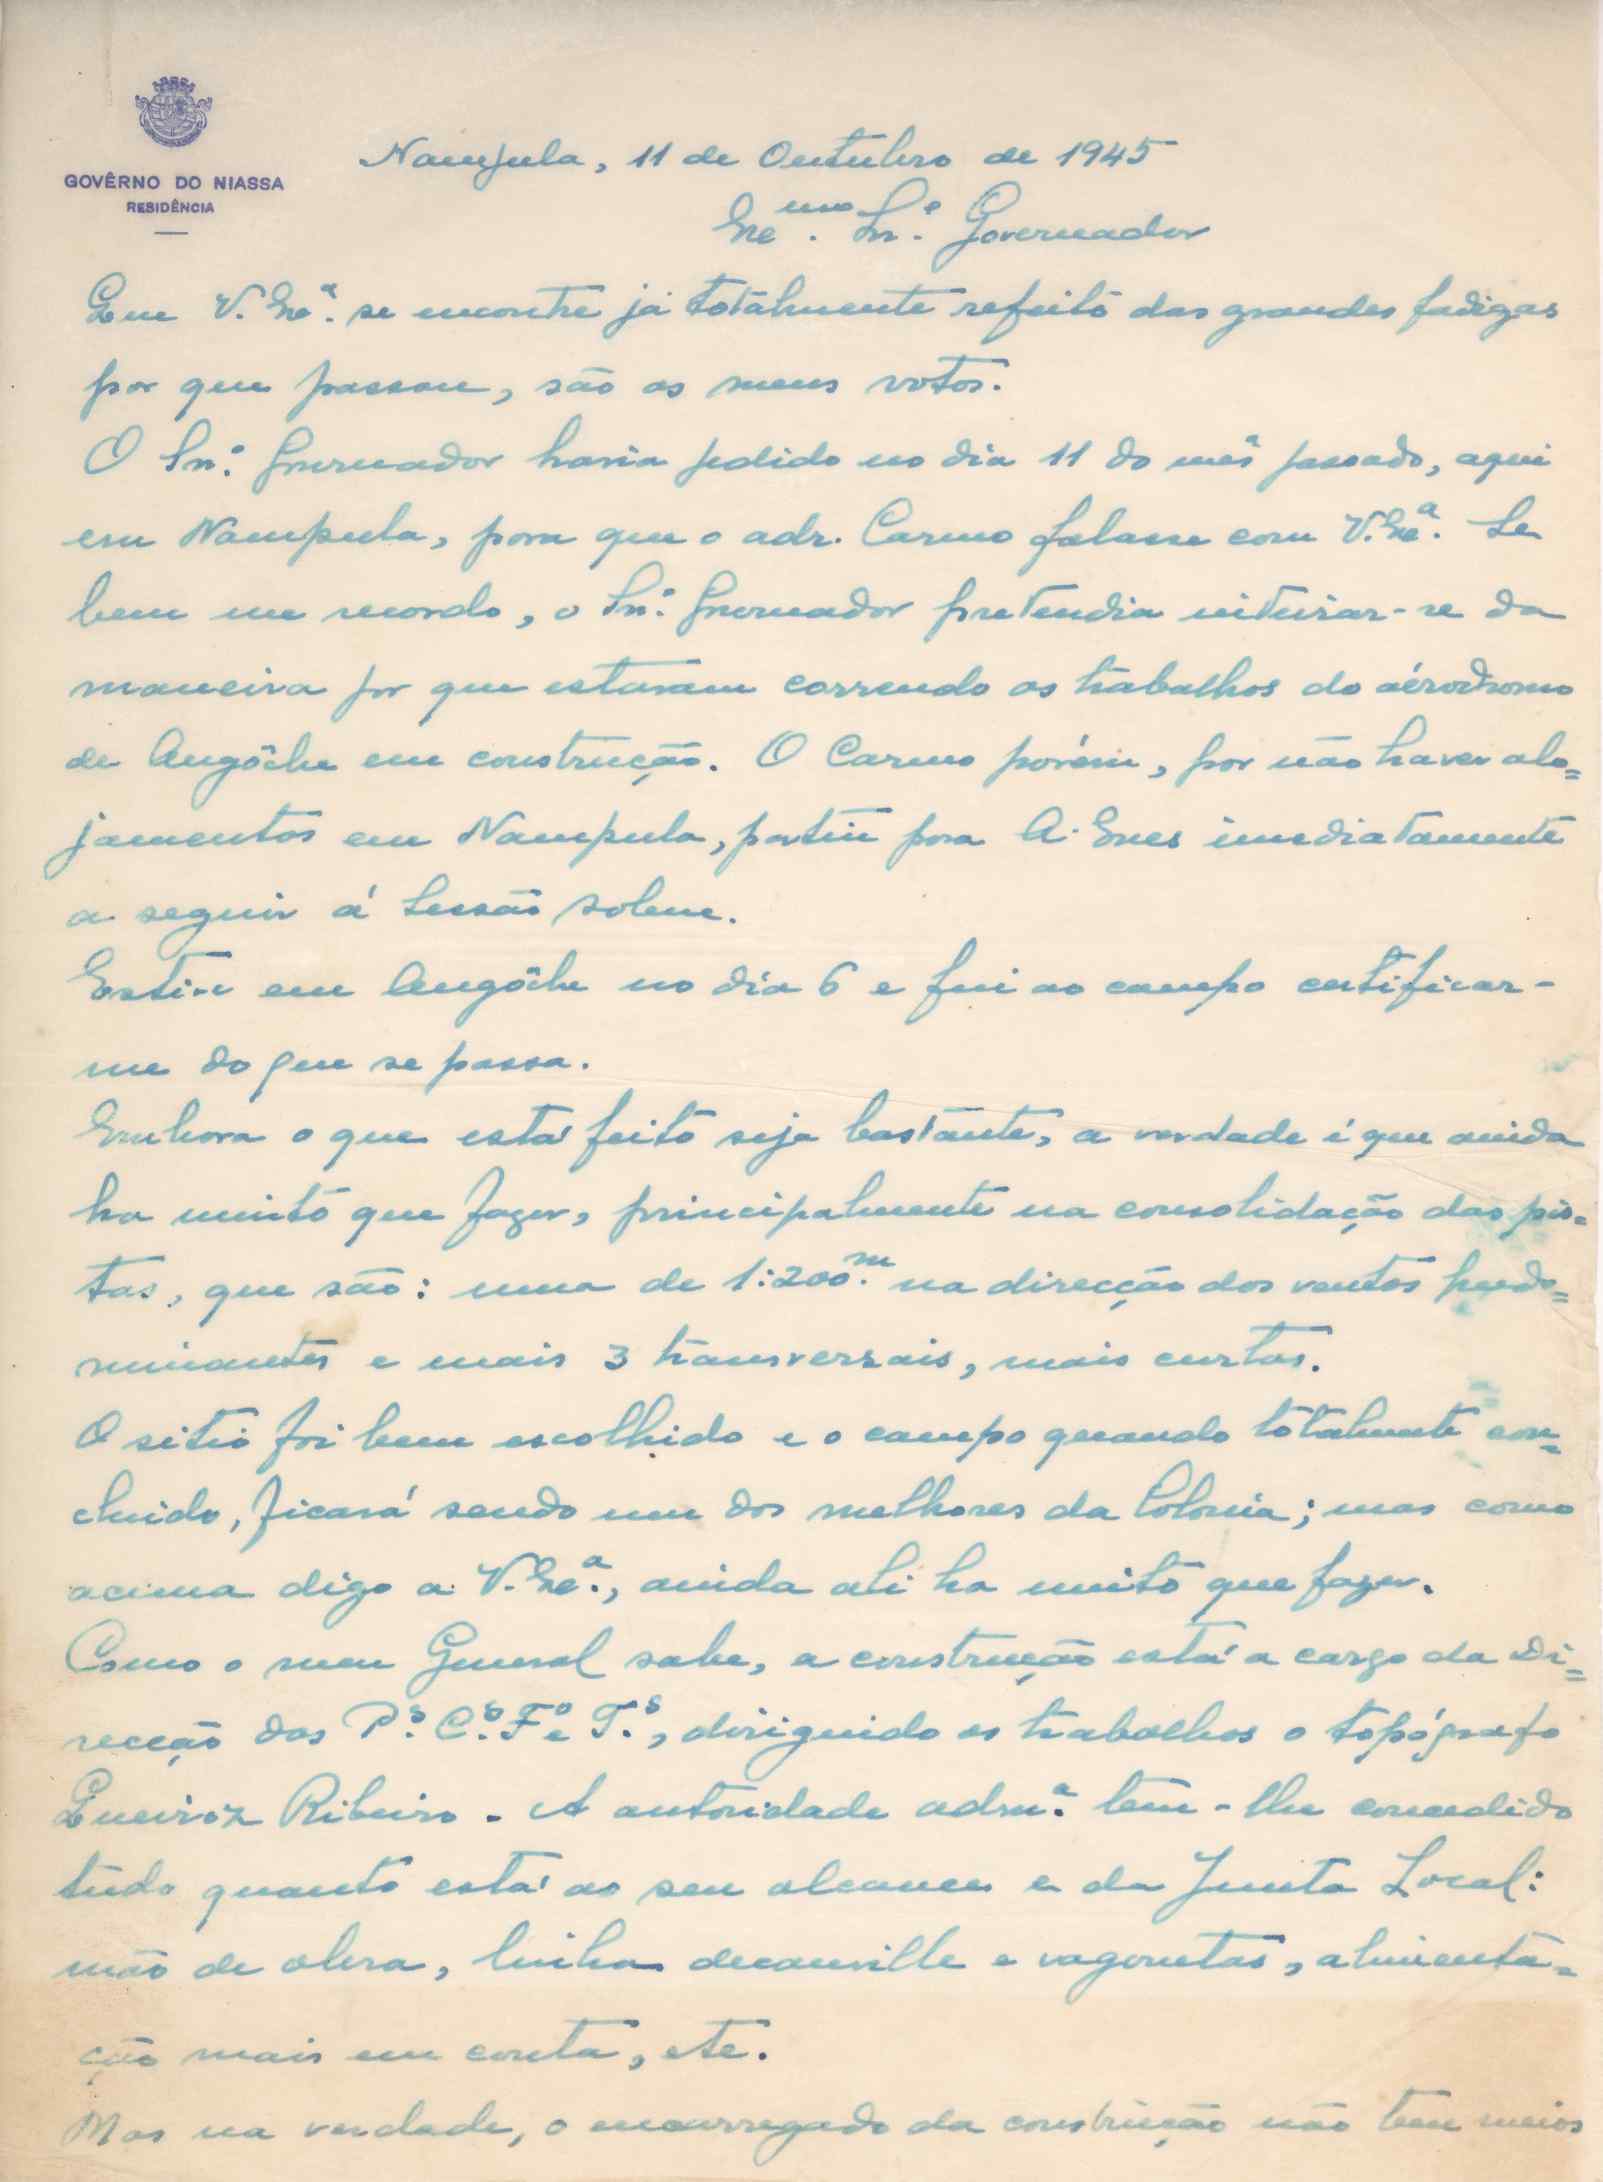 GOVÊRNO DO NIASSA
RESIDÊNCIA
Nampula, 11 de Outubro de 1945
Exc.mo Sn.r Governador
Que V. Exc.a se encontre já totalmente refeito das grandes fadigas
por que passou, são os meus votos.
O Sn.r Governador havia pedido no dia 11 do mês passado, aqui
em Nampula, para que o adr. Carmo falasse com V. Exc.a. Se
bem me recordo, o Sn.r Governador pretendia inteirar-se da
maneira por que estavam correndo os trabalhos do aérodromo
de Angôche em construção. O Carmo porém, por não haver alo=
jamentos em Nampula, partiu para A. Enes imediatamente
a seguir á Sessão solene.
Estive em Angôche no dia 6 e fui ao campo certificar-
me do que se passa.
Embora o que está feito seja bastante, a verdade é que ainda
ha muito que fazer, principalmente na consolidação das pis=
tas, que são: uma de 1:200.m na direcção dos ventos predo=
minantes e mais 3 transversais, mais curtas.
O sitio foi bem escolhido e o campo quando totalmente con=
cluido, ficará sendo um dos melhores da Colonia; mas como
acima digo a V. Exc.a, ainda ali ha muito que fazer.
Como o meu General sabe, a construção está a cargo da Di=
recção dos P.s C.s F.o e T.s, diriguindo os trabalhos o topógrafo
Queiroz Ribeiro. A autoridade adm.a tem-lhe concedido
tudo quanto está ao seu alcance e da Junta Local:
mão de obra, linha decauville e vagonetas, alimenta=
ção mais em conta, etc.
Mas na verdade, o encarregado da construção não tem meios